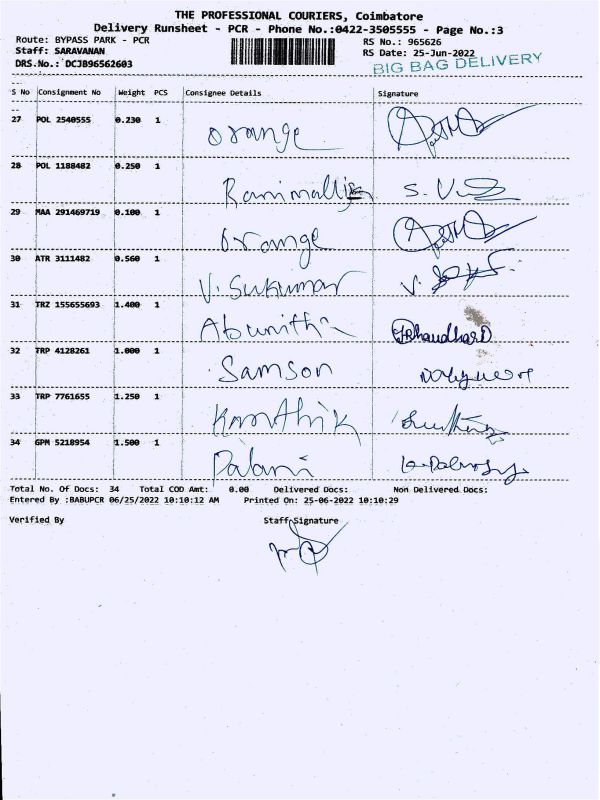 THE PROFESSIONAL COURIERS, Coimbatore
Delivery Runsheet - PCR - Phone No.:0422-3505555 - Page No.:3
Route: BYPASS PARK - PCR RS No.: 965626
Staff: SARAVANAN RS Date: 25-Jun-2022
DRS.No.: DCJB96562603 BIG BAG DELIVERY
S No Consignment No Weight PCS Consignee Details Signature
27 POL 2540555 0.230 1 Orange
28 POL 1188482 0.250 1
29 MAA 291469719 0.100 1 Orange
30 ATR 3111482 0.560 1 V. Sukumar
31 TRZ 155655693 1.400 1
32 TRP 4128261 1.000 1 Samson
33 TRP 7761655 1.250 1 Karthik
34 GPM 5218954 1.500 1 Palani
Total No. Of Docs: 34 Total COD Amt: 0.00 Delivered Docs: Non Delivered Docs:
Entered By :BABUPCR 06/25/2022 10:10:12 AM Printed On: 25-06-2022 10:10:29
Verified By Staff Signature